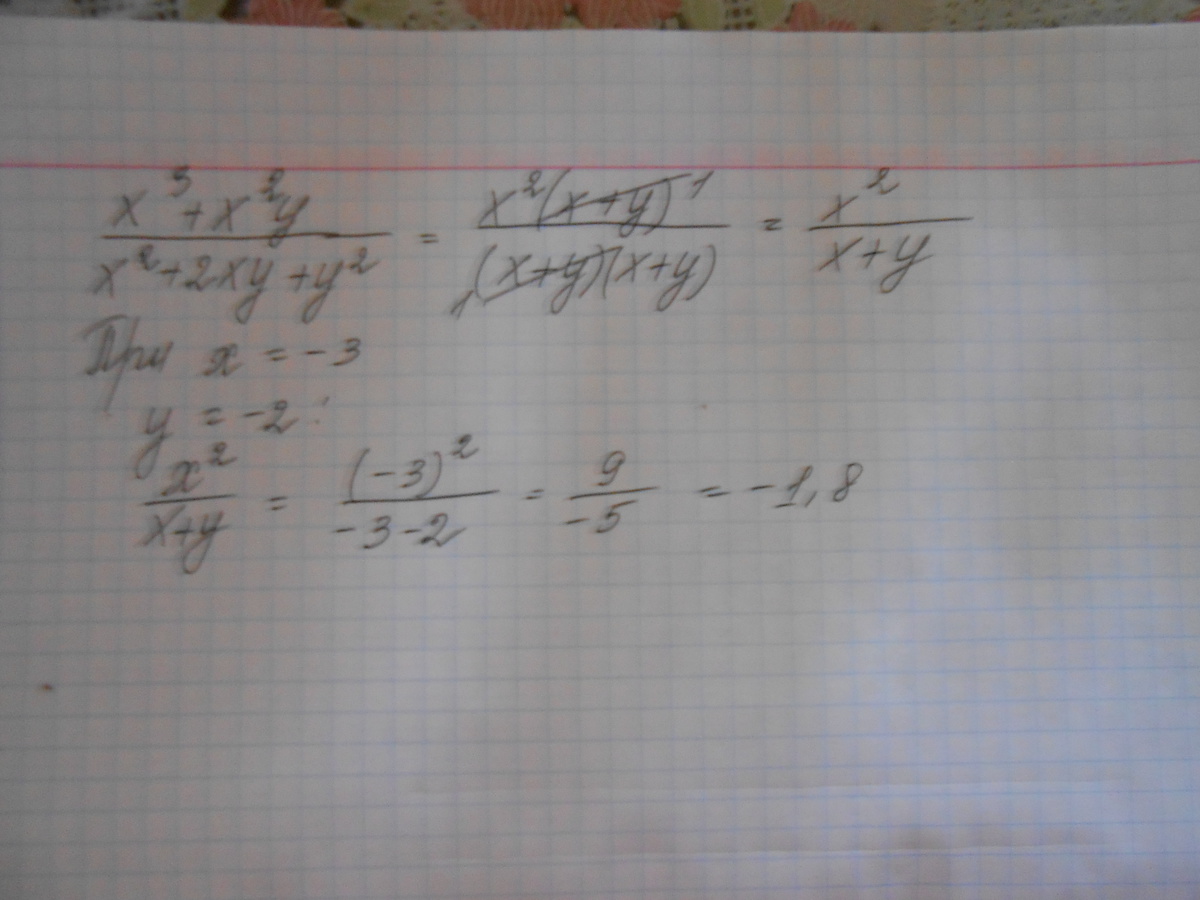 x³+x²y / x²+2xy+y² = x²(x+y)¹ / ₁(x+y)(x+y) = x² / x+y
При x = -3
y = -2:
x² / x+y = (-3)² / -3-2 = 9 / -5 = -1,8